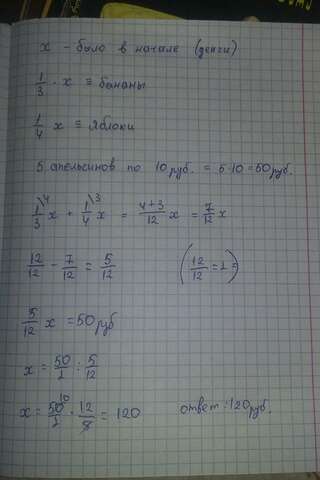 x - было в начале (деньги)
1/3 · x = бананы
1/4 x = яблоки
5 апельсинов по 10 руб. = 5·10=50 руб.
1\4/3 x + 1\3/4 x = 4+3/12 x = 7/12 x
12/12 - 7/12 = 5/12 (12/12 = 1)
5/12 x = 50 руб
x = 50/1 : 5/12
x = 50 10/1 · 12/5 = 120 ответ: 120 руб.